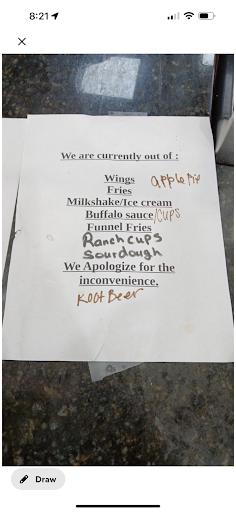 8:21
We are currently out of :
Wings apple Pie
Fries
Milkshake/Ice cream
Buffalo sauce/cups
Funnel Fries
Ranch cups
Sourdough
We Apologize for the
inconvenience.
Root Beer
Draw